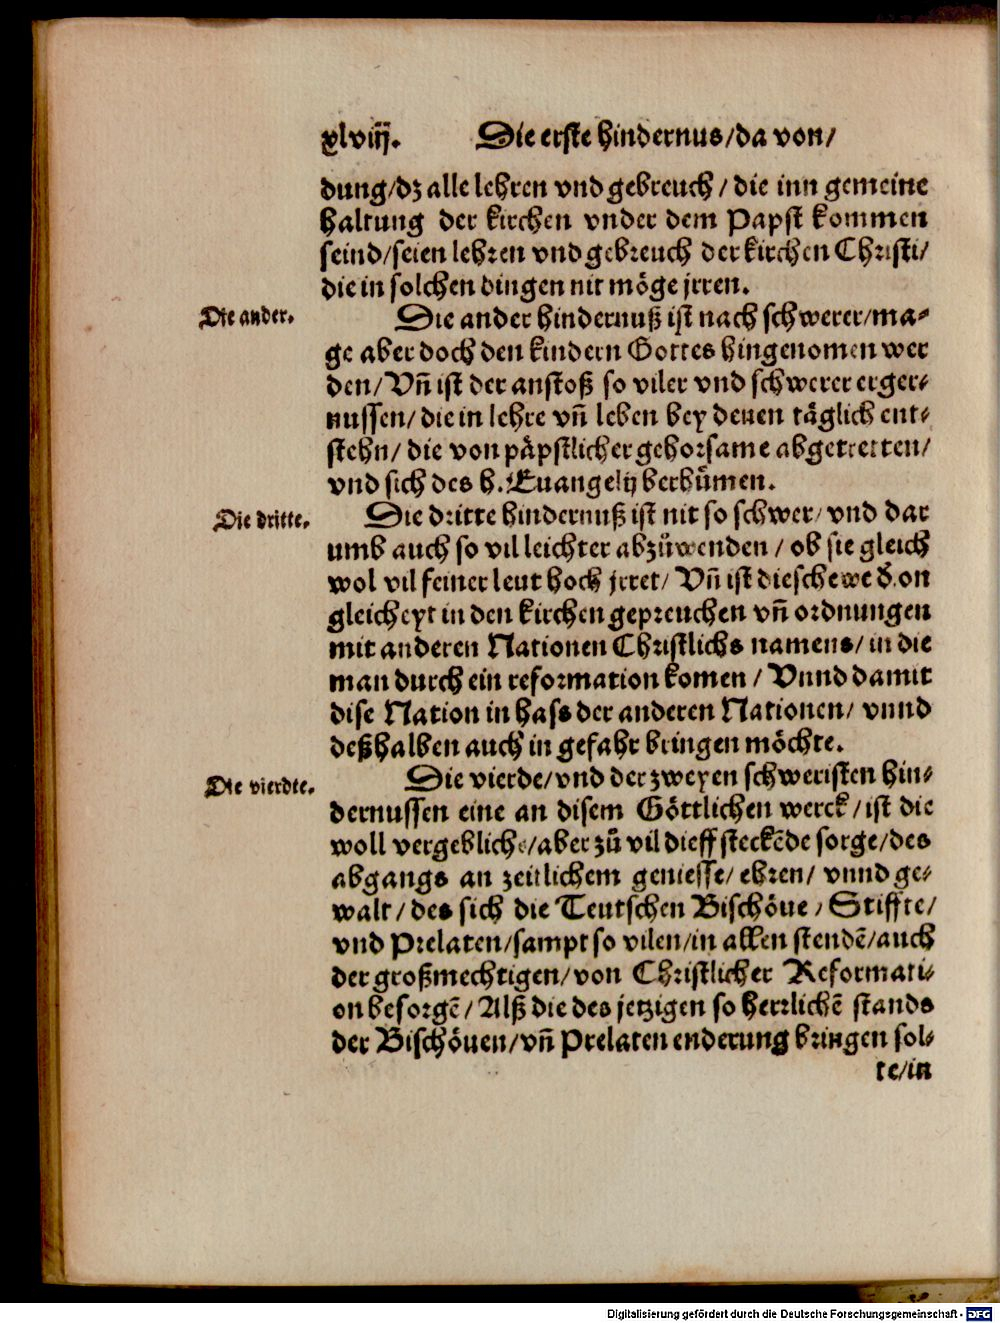 xlviij. Die erste hindernus/da von/
dung/dz alle lehren vnd gebreuch/ die inn gemeine
haltung der kirchen vnder dem Papst kommen
seind/seien lehren vnd gebreuch der kirchen Christi/
die in solchen dingen nit möge jrren.
Die ander.
Die ander hindernuß ist nach schwerer/ma⸗
ge aber doch den kindern Gottes hingenomen wer
den/Vñ ist der anstoß so viler vnd schwerer erger⸗
nussen/die in lehre vñ leben bey denen täglich ent⸗
stehn/ die von päpstlicher gehorsame abgetretten/
vnd sich des h. Euangelij berhümen.
Die dritte.
Die dritte hindernuß ist nit so schwer/ vnd dar
umb auch so vil leichter abzůwenden/ ob sie gleich
wol vil feiner leut hoch jrret/ Vñ ist die schewe d'on
gleicheyt in den kirchen gepreuchen vñ ordnungen
mit anderen Nationen Christlichs namens/ in die
man durch ein reformation komen/ Vnnd damit
dise Nation in hass der anderen Nationen/ vnnd
deßhalben auch in gefahr bringen möchte.
Die vierdte.
Die vierde/vnd der zweyen schweristen hin⸗
dernussen eine an disem Göttlichen werck/ist die
woll vergebliche/aber zů vil dieff steckēde sorge/des
abgangs an zeitlichem geniesse/ ehren/ vnnd ge⸗
walt/ des sich die Teutschen Bischöue/ Stiffte/
vnd Prelaten/sampt so vilen/in allen stendē/auch
der großmechtigen/von Christlicher Reformati⸗
on besorgē/ Alß die des jetzigen so herrlichē stands
der Bischöuen/vñ Prelaten enderung bringen sol⸗
te/in
Digitalisierung gefördert durch die Deutsche Forschungsgemeinschaft - DFG